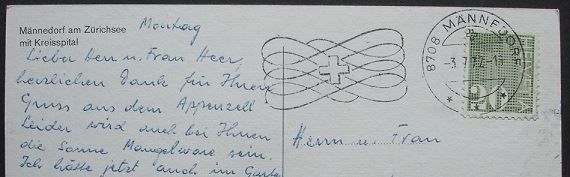 Männedorf am Zürichsee
mit Kreisspital
Montag
Lieber Herr u. Frau Heer,
herzlichen Dank für Ihren
Gruss aus dem Appenzell
Leider wird auch bei Ihnen
die Sonne Mangelware sein.
Ich hätte jetzt auch im Garten
8708 MÄNNEDORF
Herrn u. Frau